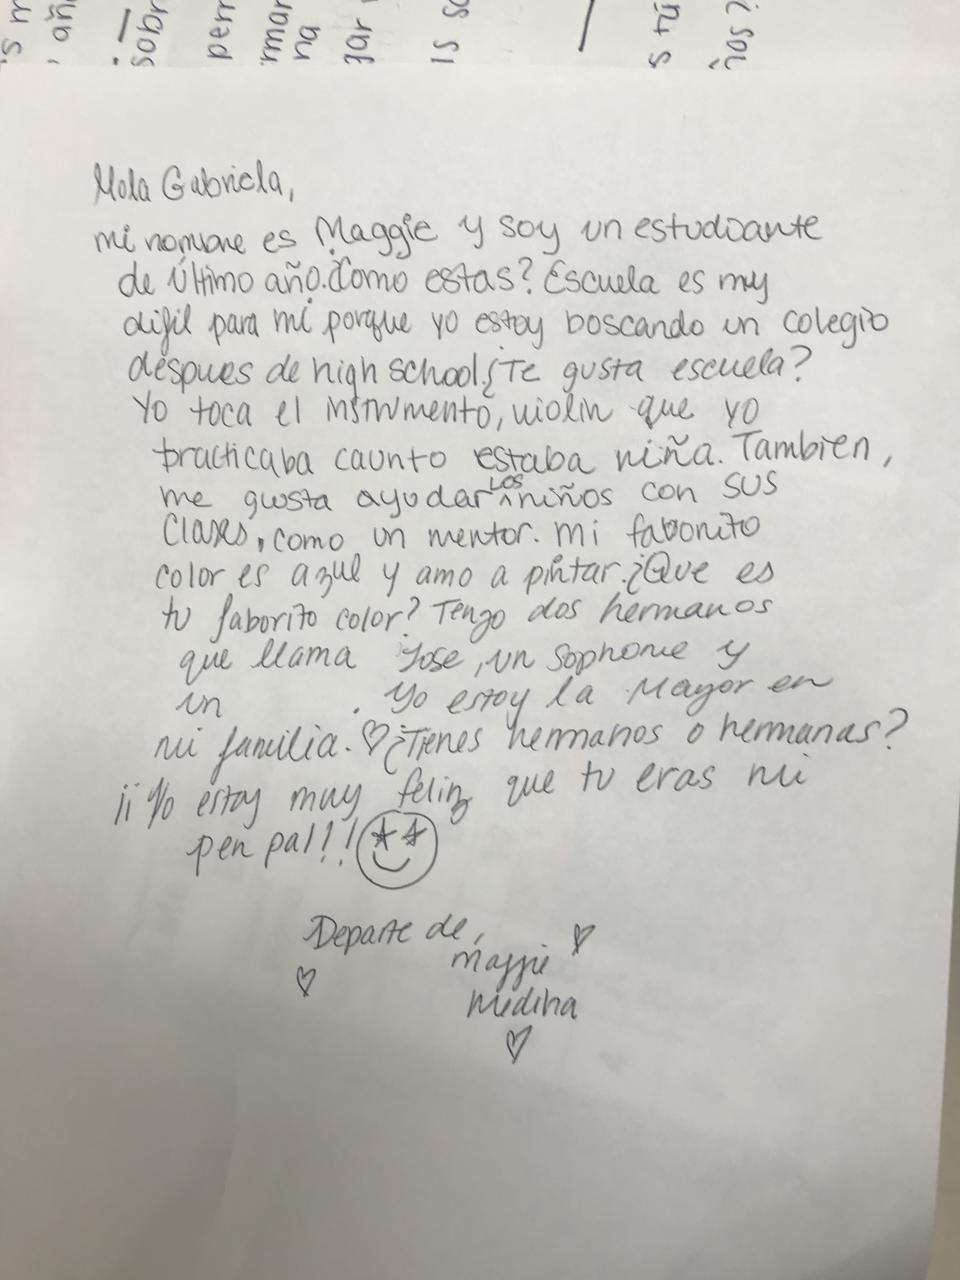 Hola Gabriela,
mi nombre es Maggie y soy un estudiante
de último año.¿Como estas? Escuela es muy
difil para mí porque yo estoy boscando un colegio
despues de high school.¿Te gusta escuela?
Yo toca el instrumento, violin que yo
practicaba caunto estaba niña. Tambien,
me gusta ayudar los niños con sus
clases, como un mentor. mi faborito
color es azul y amo a pintar.¿Que es
tu faborito color? Tengo dos hermanos
que llama Jose, un sophome y
un . Yo estoy la Mayor en
mi familia. ♡ ¿Tienes hermanos o hermanas?
¡¡ Yo estoy muy feliz que tu eras mi
pen pal!!
Departe de,
Maggie
Medina